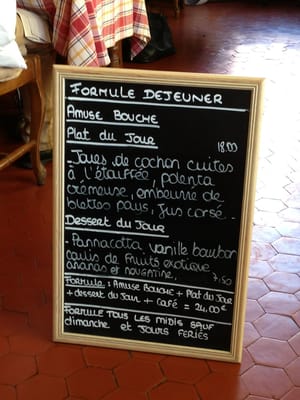 FORMULE DEJEUNER
AMUSE BOUCHE
Plat du Jour
18.00
- Joues de cochon cuites
à l'étouffée, polenta
crémeuse, embeurrée de
blettes pays, jus corsé.
Dessert du Jour
- Pannacotta vanille bourbon
coulis de fruits exotique
ananas et nougatine. 7,50
Formule : Amuse Bouche + Plat du Jour
+ dessert du Jour + Café = 24,00€
FORMULE TOUS LES MIDIS SAUF
dimanche et JOURS FERIÉS